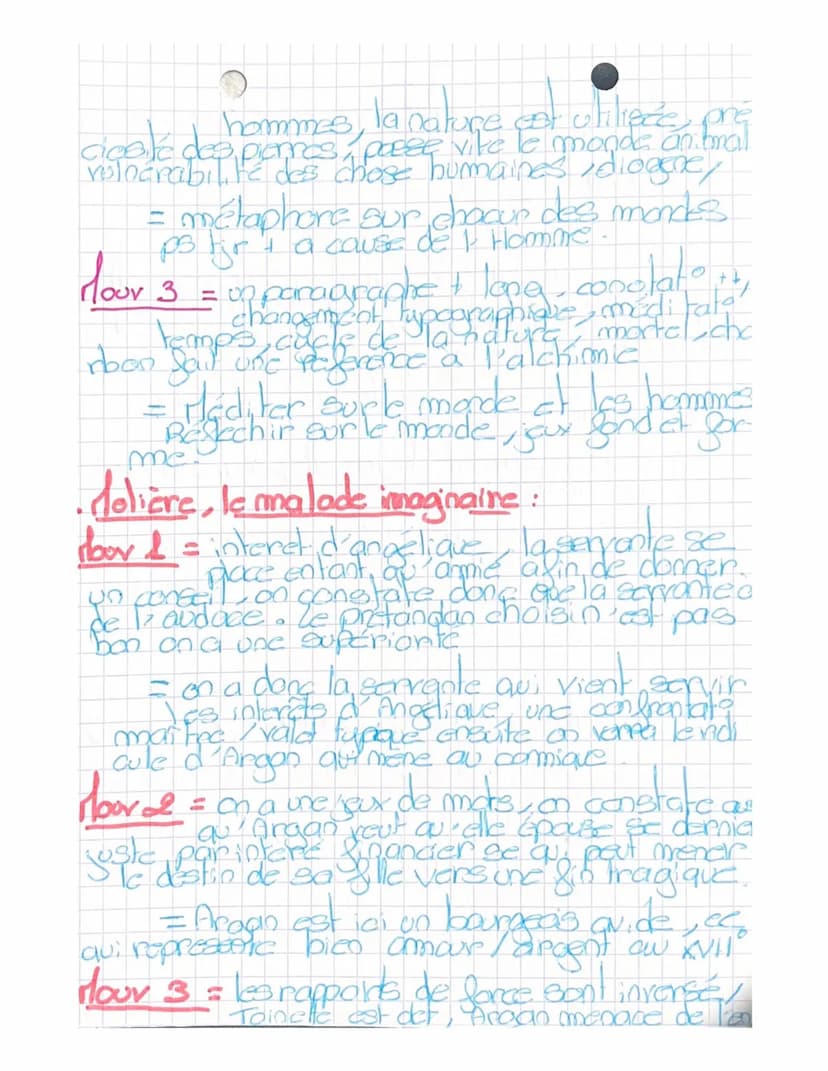 hommes, la nature est utilisée, pré
ciosité des pierres, passe vite le monde animal
vulnérabilité des chose humaines, diogène,
= métaphore sur chacun des mondes
ps tjr + a cause de l'Homme.
Mouv 3 = un paragraphe + long, constat° ++,
changement typographique, méditat°,
temps, cycle de la nature, mortel, cha
rbon fait une référence a l'alchimie
= Méditer sur le monde et les hommes
Réflechir sur le monde, jeux fond et for-
me.
. Molière, le malade imaginaire :
Mouv 1 = interet d'angélique, la servante se
place entant qu'amie afin de donner
un conseil, on constate donc que la servante a
de l'audace. Le prétandan choisin'est pas
bon on a une supériorité
= on a donc la servante qui vient servir
les interêts d'Angélique, une confrontat°
maître / valet typique ensuite on verra le ridi
cule d'Argan qui mène au comique.
Mouv 2 = on a une jeux de mots, on constate que
qu'Argan veut qu'elle épouse se dernier
juste par interé financier se qui peut mener
le destin de sa fille vers une fin tragique.
= Argan est ici un bourgeois avide, ce
qui représente bien amour / argent au XVII°
Mouv 3 = les rapports de force sont inversé,
Toinette est det, Argan menace de l'en